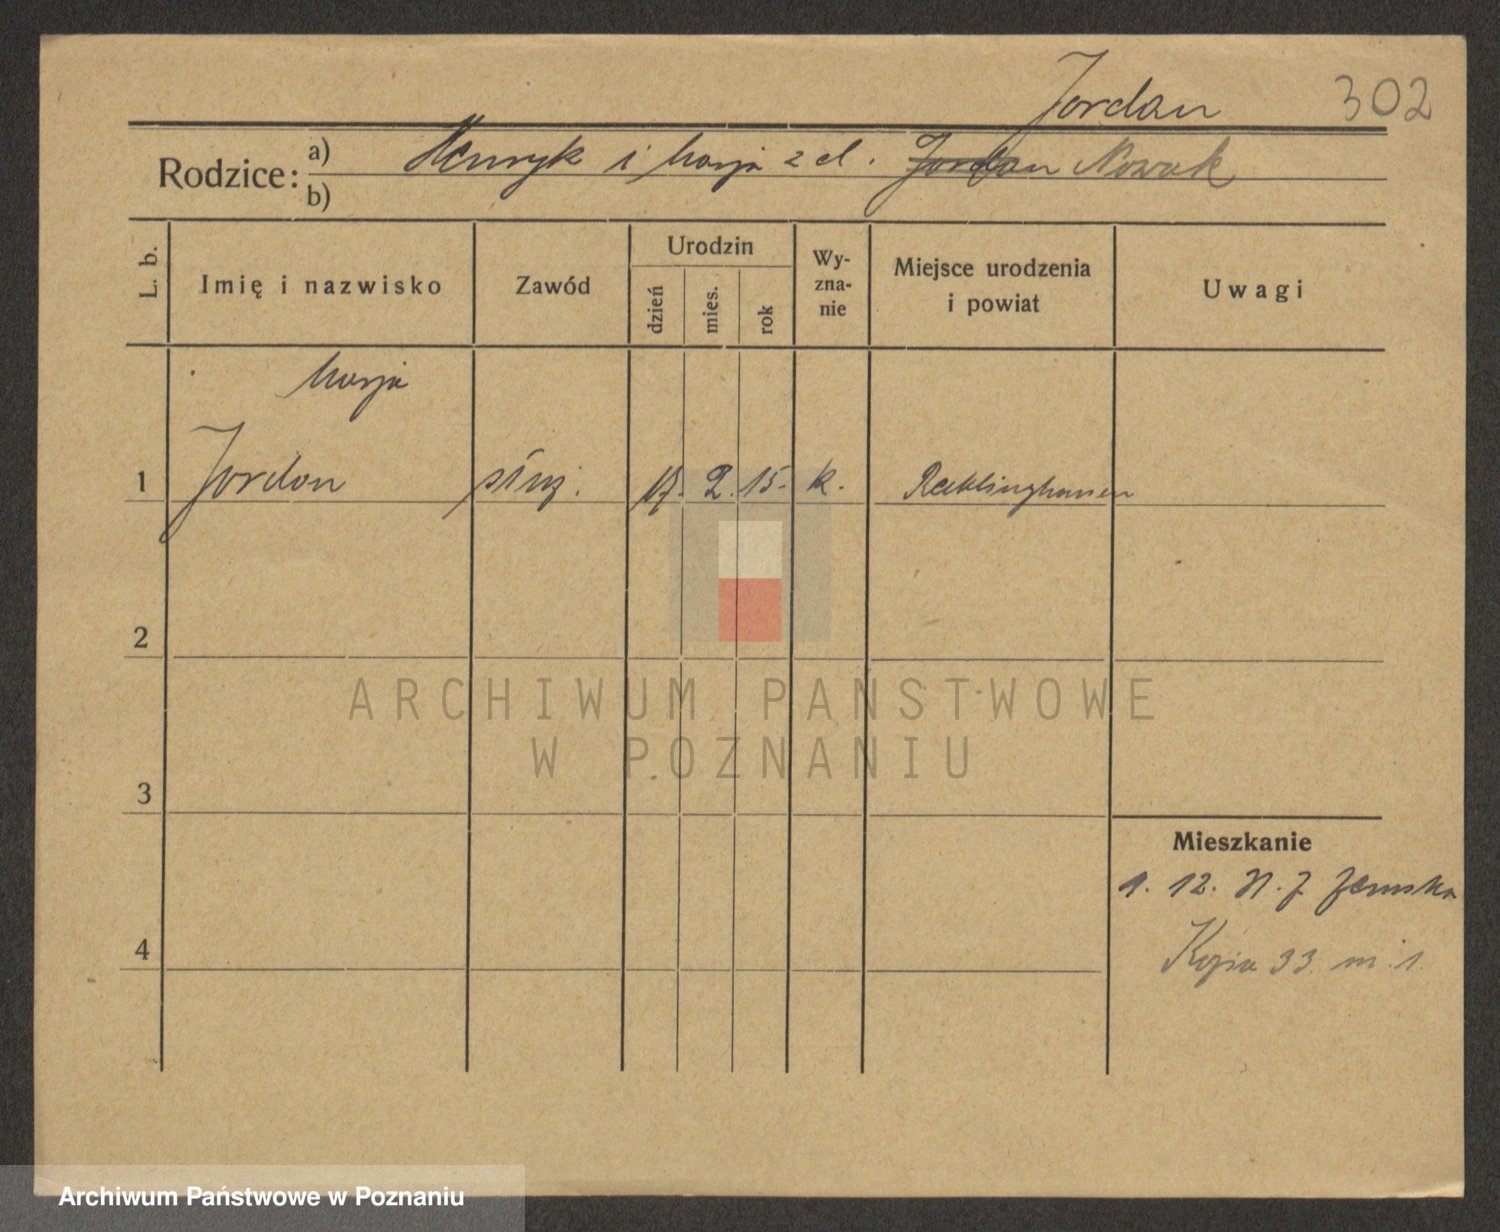 Jordan 302
Rodzice: a) Henryk i Marja z d. Jordan Nowak
b)
L. b. Imię i nazwisko Zawód Urodzin dzień mies. rok Wy-zna-nie Miejsce urodzenia i powiat Uwagi
Marja
1 Jordan służ. 2. 15. k. Recklinghausen
2
ARCHIWUM PAŃSTWOWE
W POZNANIU
3
Mieszkanie
1. 12.
4
33. m. 1.
Archiwum Państwowe w Poznaniu